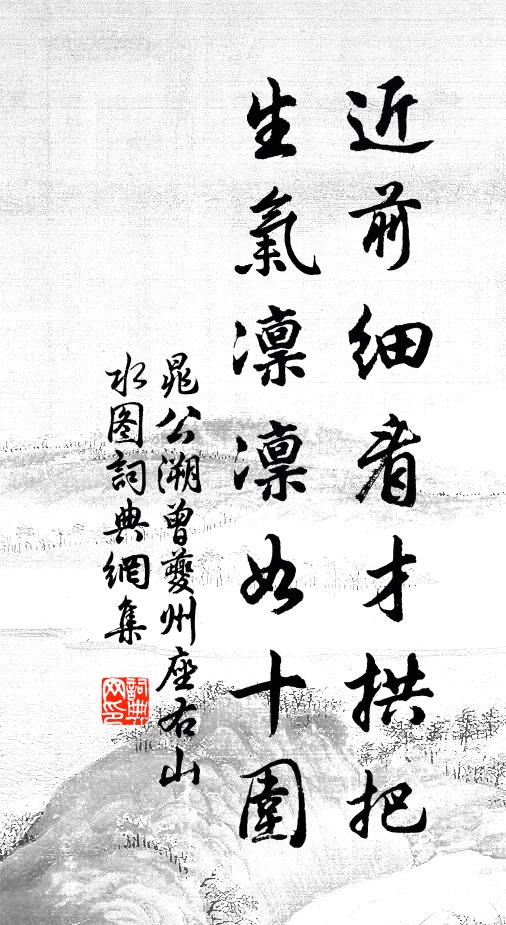 近前細看才拱把
生氣凜凜如十圍
晁公溯曾夔州座右山
水图詞典網集
詞典
网印